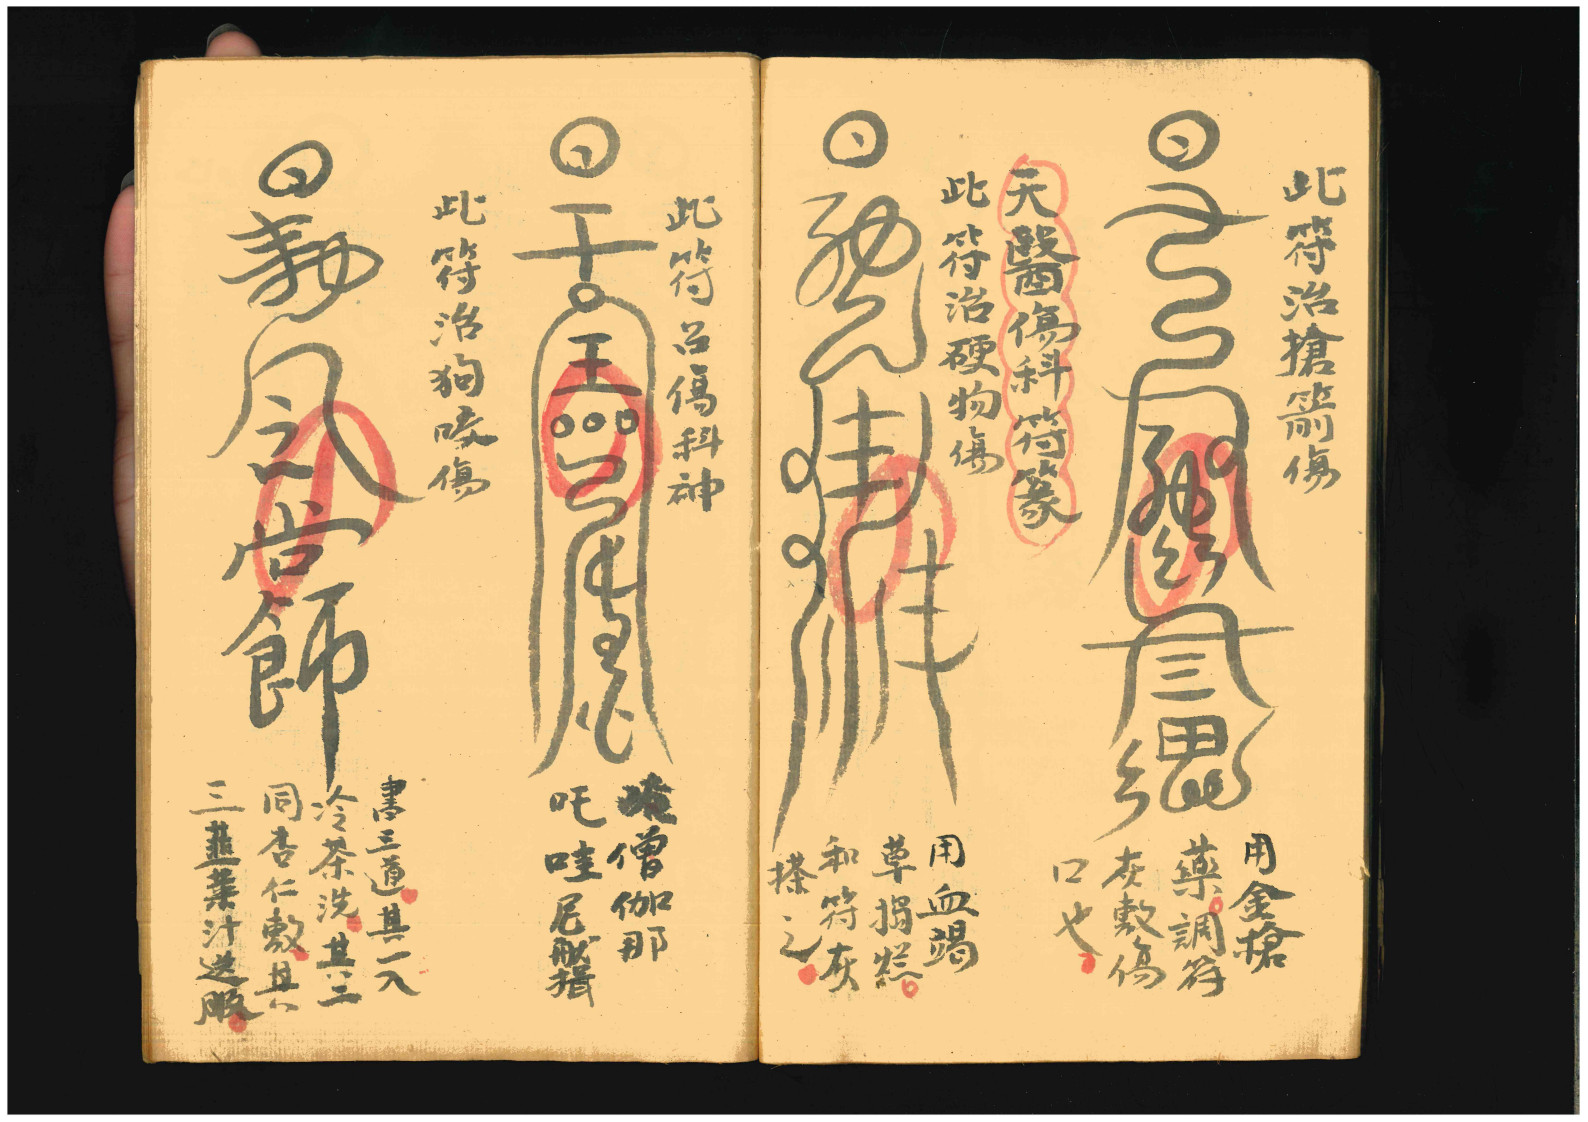 此符治搶箭傷
用金槍
藥調符
灰敷傷
口也
天醫傷科符篆
此符治硬物傷
用血竭
草搗爛
和符灰
搽之
此符召傷科神
唵僧伽那
吒哇尼
此符治狗咬傷
書三道其一入
冷茶洗其二
同杏仁敷其
三韮葉汁送服